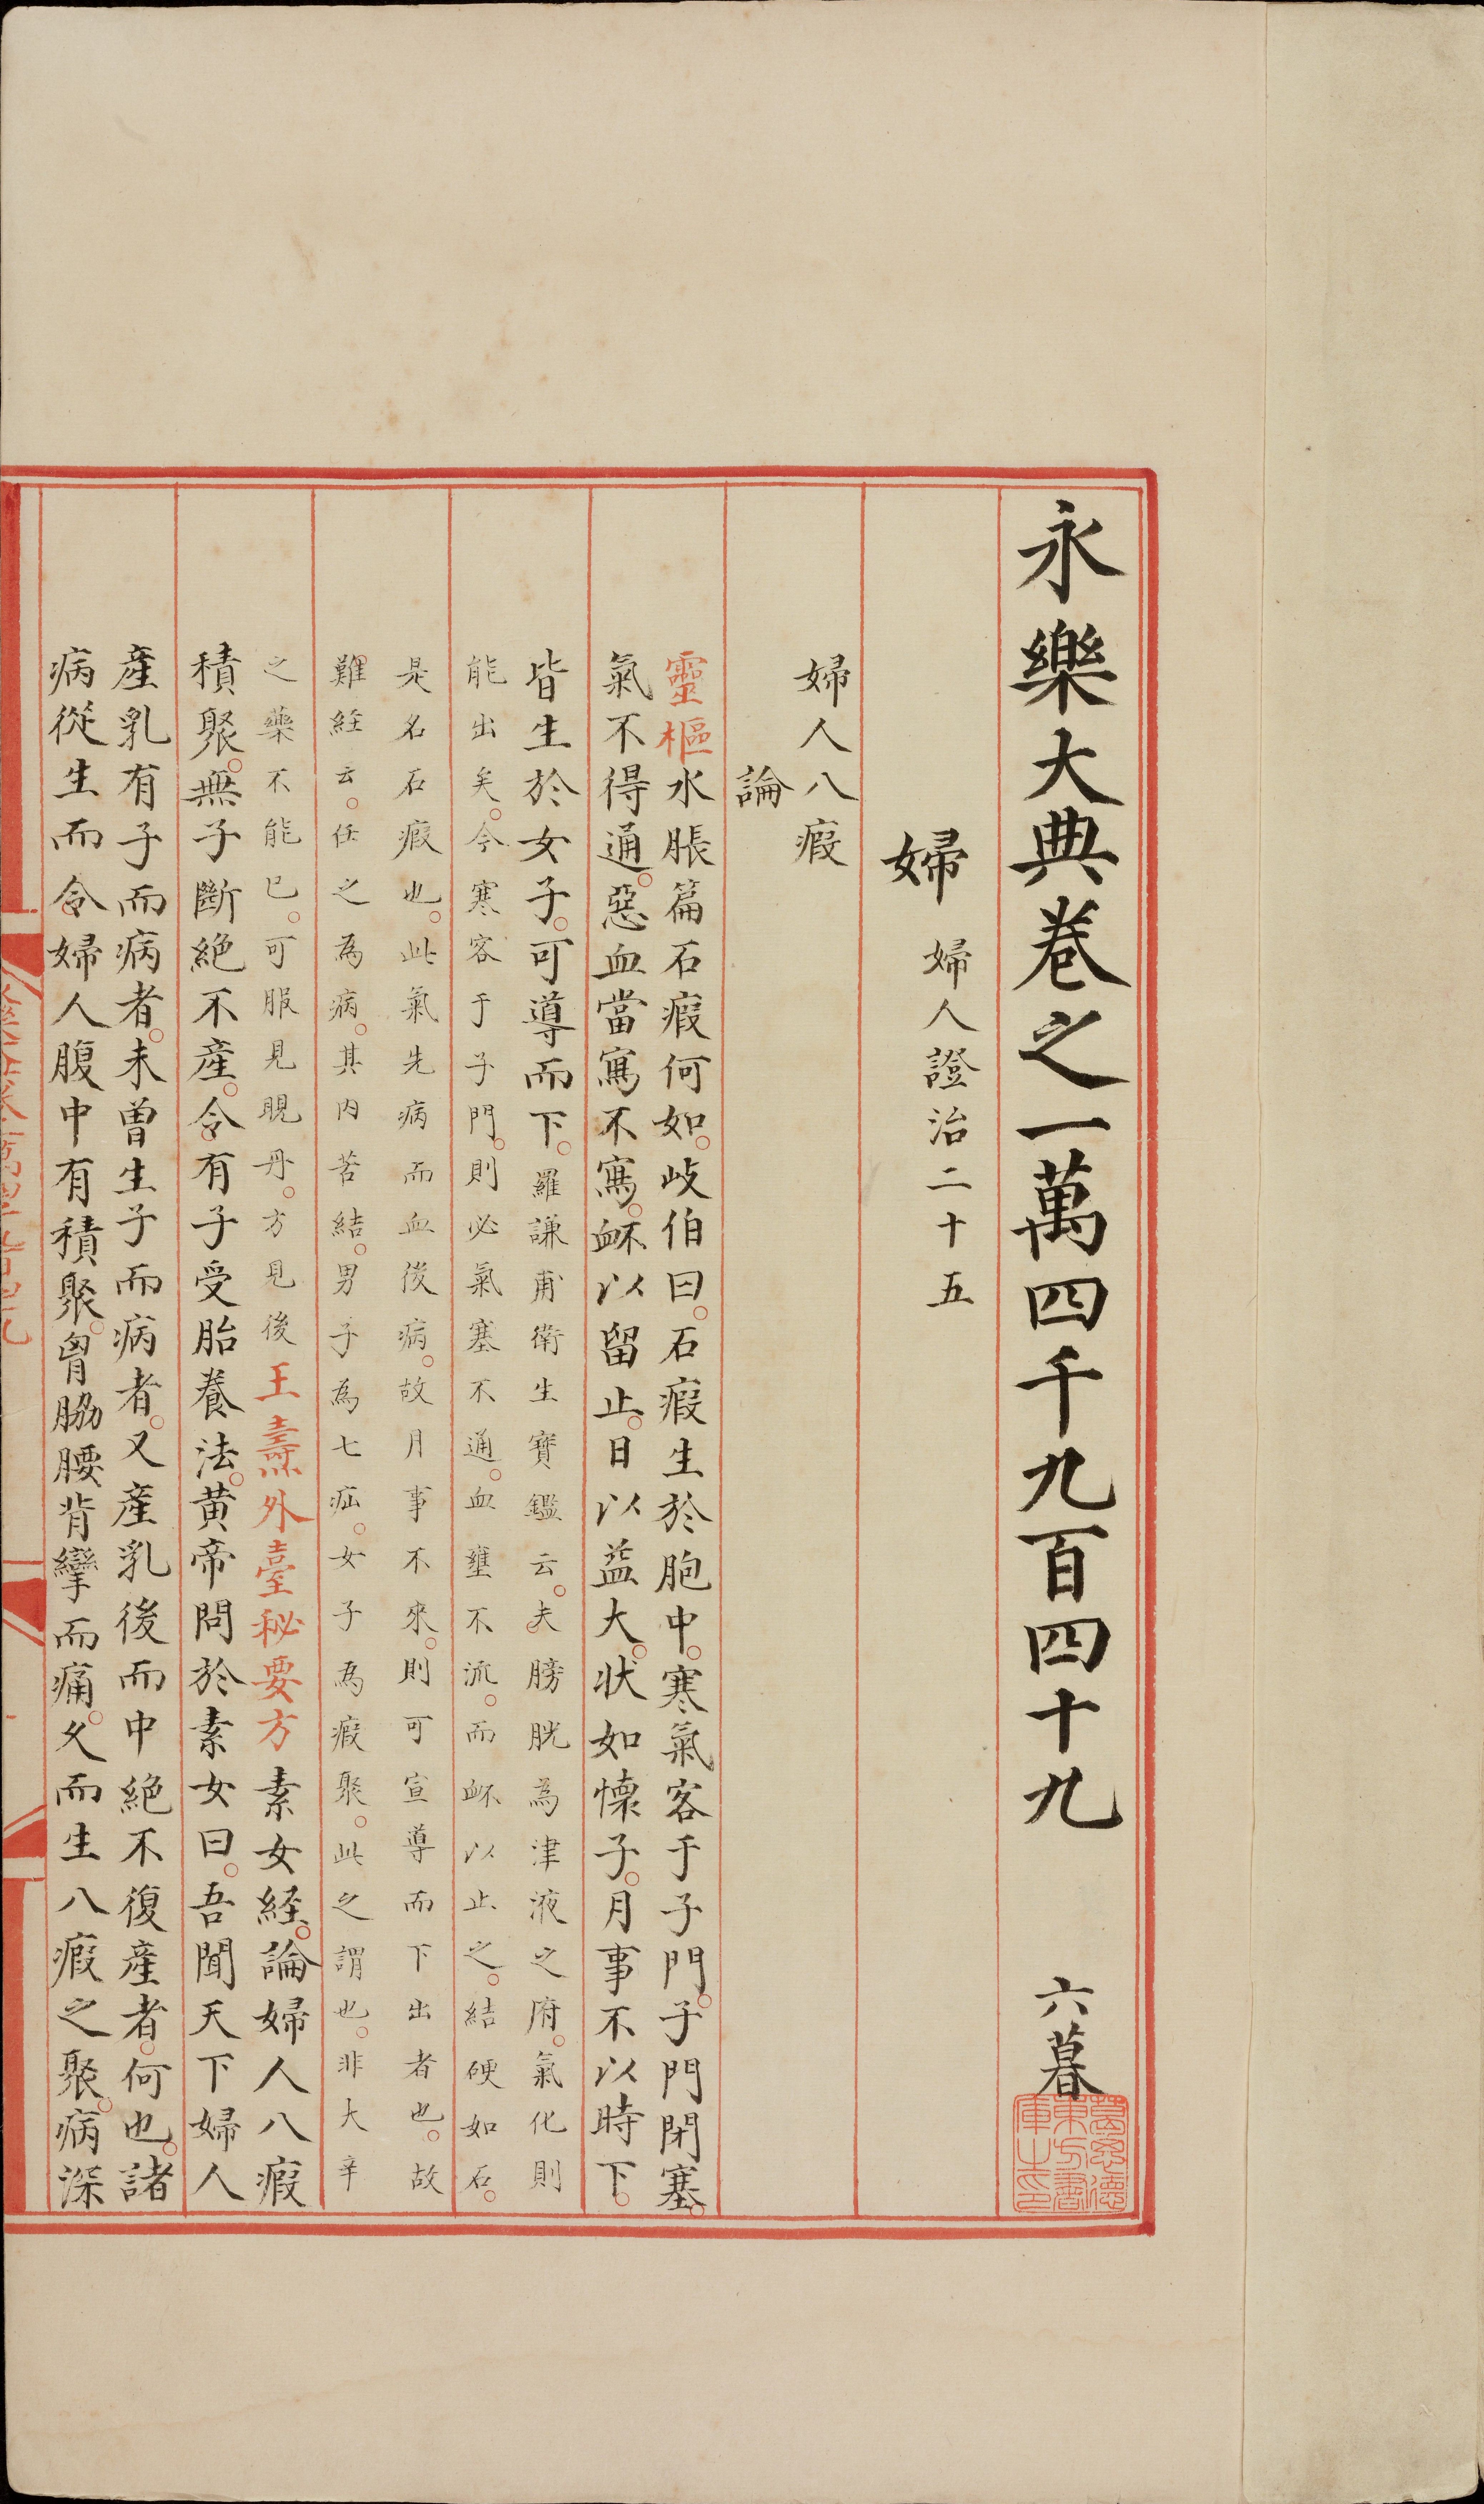 永樂大典卷之一萬四千九百四十九 六暮
葛思德東方書庫之印
婦 婦人證治二十五
婦人八瘕
論
靈樞水脹篇石瘕何如。岐伯曰。石瘕生於胞中。寒氣客于子門。子門閉塞。
氣不得通。惡血當寫不寫。衃以留止。日以益大。狀如懷子。月事不以時下。
皆生於女子。可導而下。羅謙甫衛生寶鑑云。夫膀胱為津液之府。氣化則
能出矣。今寒客于子門。則必氣塞不通。血壅不流。而衃以止之。結硬如石。
是名石瘕也。此氣先病而血後病。故月事不來。則可宣導而下出者也。故
難經云。任之為病。其內苦結。男子為七疝。女子為瘕聚。此之謂也。非大辛
之藥不能已。可服見晛丹。方見後王燾外臺秘要方素女經。論婦人八瘕
積聚。無子斷絕不產。令有子受胎養法。黃帝問於素女曰。吾聞天下婦人
產乳有子而病者。未曾生子而病者。又產乳後而中絕不復產者。何也。諸
病從生而令婦人腹中有積聚。胷脇腰背攣而痛。久而生八瘕之聚。病深